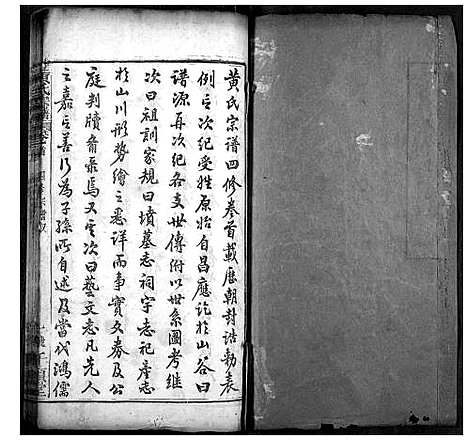 黄氏宗谱四修卷首載歷朝封诰勅表
例之次紀受姓原始自昌應訖於山谷曰
谱源再次紀各支世傳附以世系圖考继
次曰祖訓家規曰墳墓志祠宇志祀產志
於山川形勢繪之悉詳而争實文券及公
庭判牘畨录焉又其次曰藝文志凡先人
之嘉言善行为子孫所自述及當代鴻儒